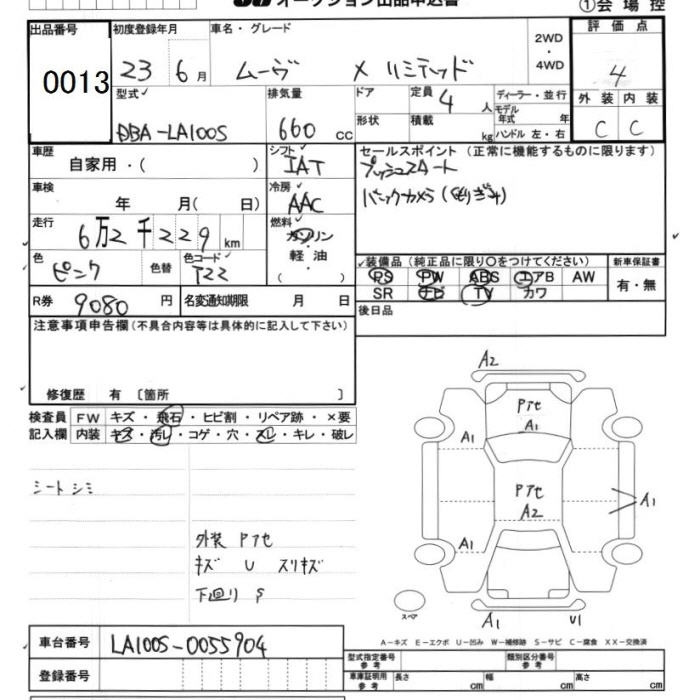 オークション出品申込書 ①会場控
出品番号 初度登録年月 車名・グレード 2WD・4WD 評価点
0013 23 6月 ムーヴ X リミテッド 4
型式 排気量 ドア 定員 4 人 ディーラー・並行 外装 内装
DBA-LA100S 660 cc 形状 積載 kg モデル年式 年 C C
ハンドル 左・右
車歴 シフト セールスポイント (正常に機能するものに限ります)
自家用・( ) IAT プッシュスタート
車検 冷房 バックカメラ
年 月( 日) AAC
走行 燃料
6万2千229km ガソリン
軽油
( )
色 色替 色コード 装備品(純正品に限り○をつけてください) 新車保証書
ピンク T22 PS PW ABS エアB AW 有・無
SR ナビ TV カワ
R券 9080 円 名変通知期限 月 日 後日品
注意事項申告欄(不具合内容等は具体的に記入して下さい)
修復歴 有 〔箇所 〕
検査員 FW キズ・飛石・ヒビ割・リペア跡・×要
記入欄 内装 キズ・汚レ・コゲ・穴・スレ・キレ・破レ
シートシミ
外装 Pアセ
キズ U スリキズ
下廻り S
A2
Pアセ
A1
A1
Pアセ
A2
A1
A1
スペア
A1 U1
A−キズ E−エクボ U−凹み W−補修跡 S−サビ C−腐食 XX−交換済
車台番号 LA100S-0055904
型式指定番号 参考 類別区分番号 参考
登録番号 車庫証明用 参考 長さ cm 幅 cm 高さ cm